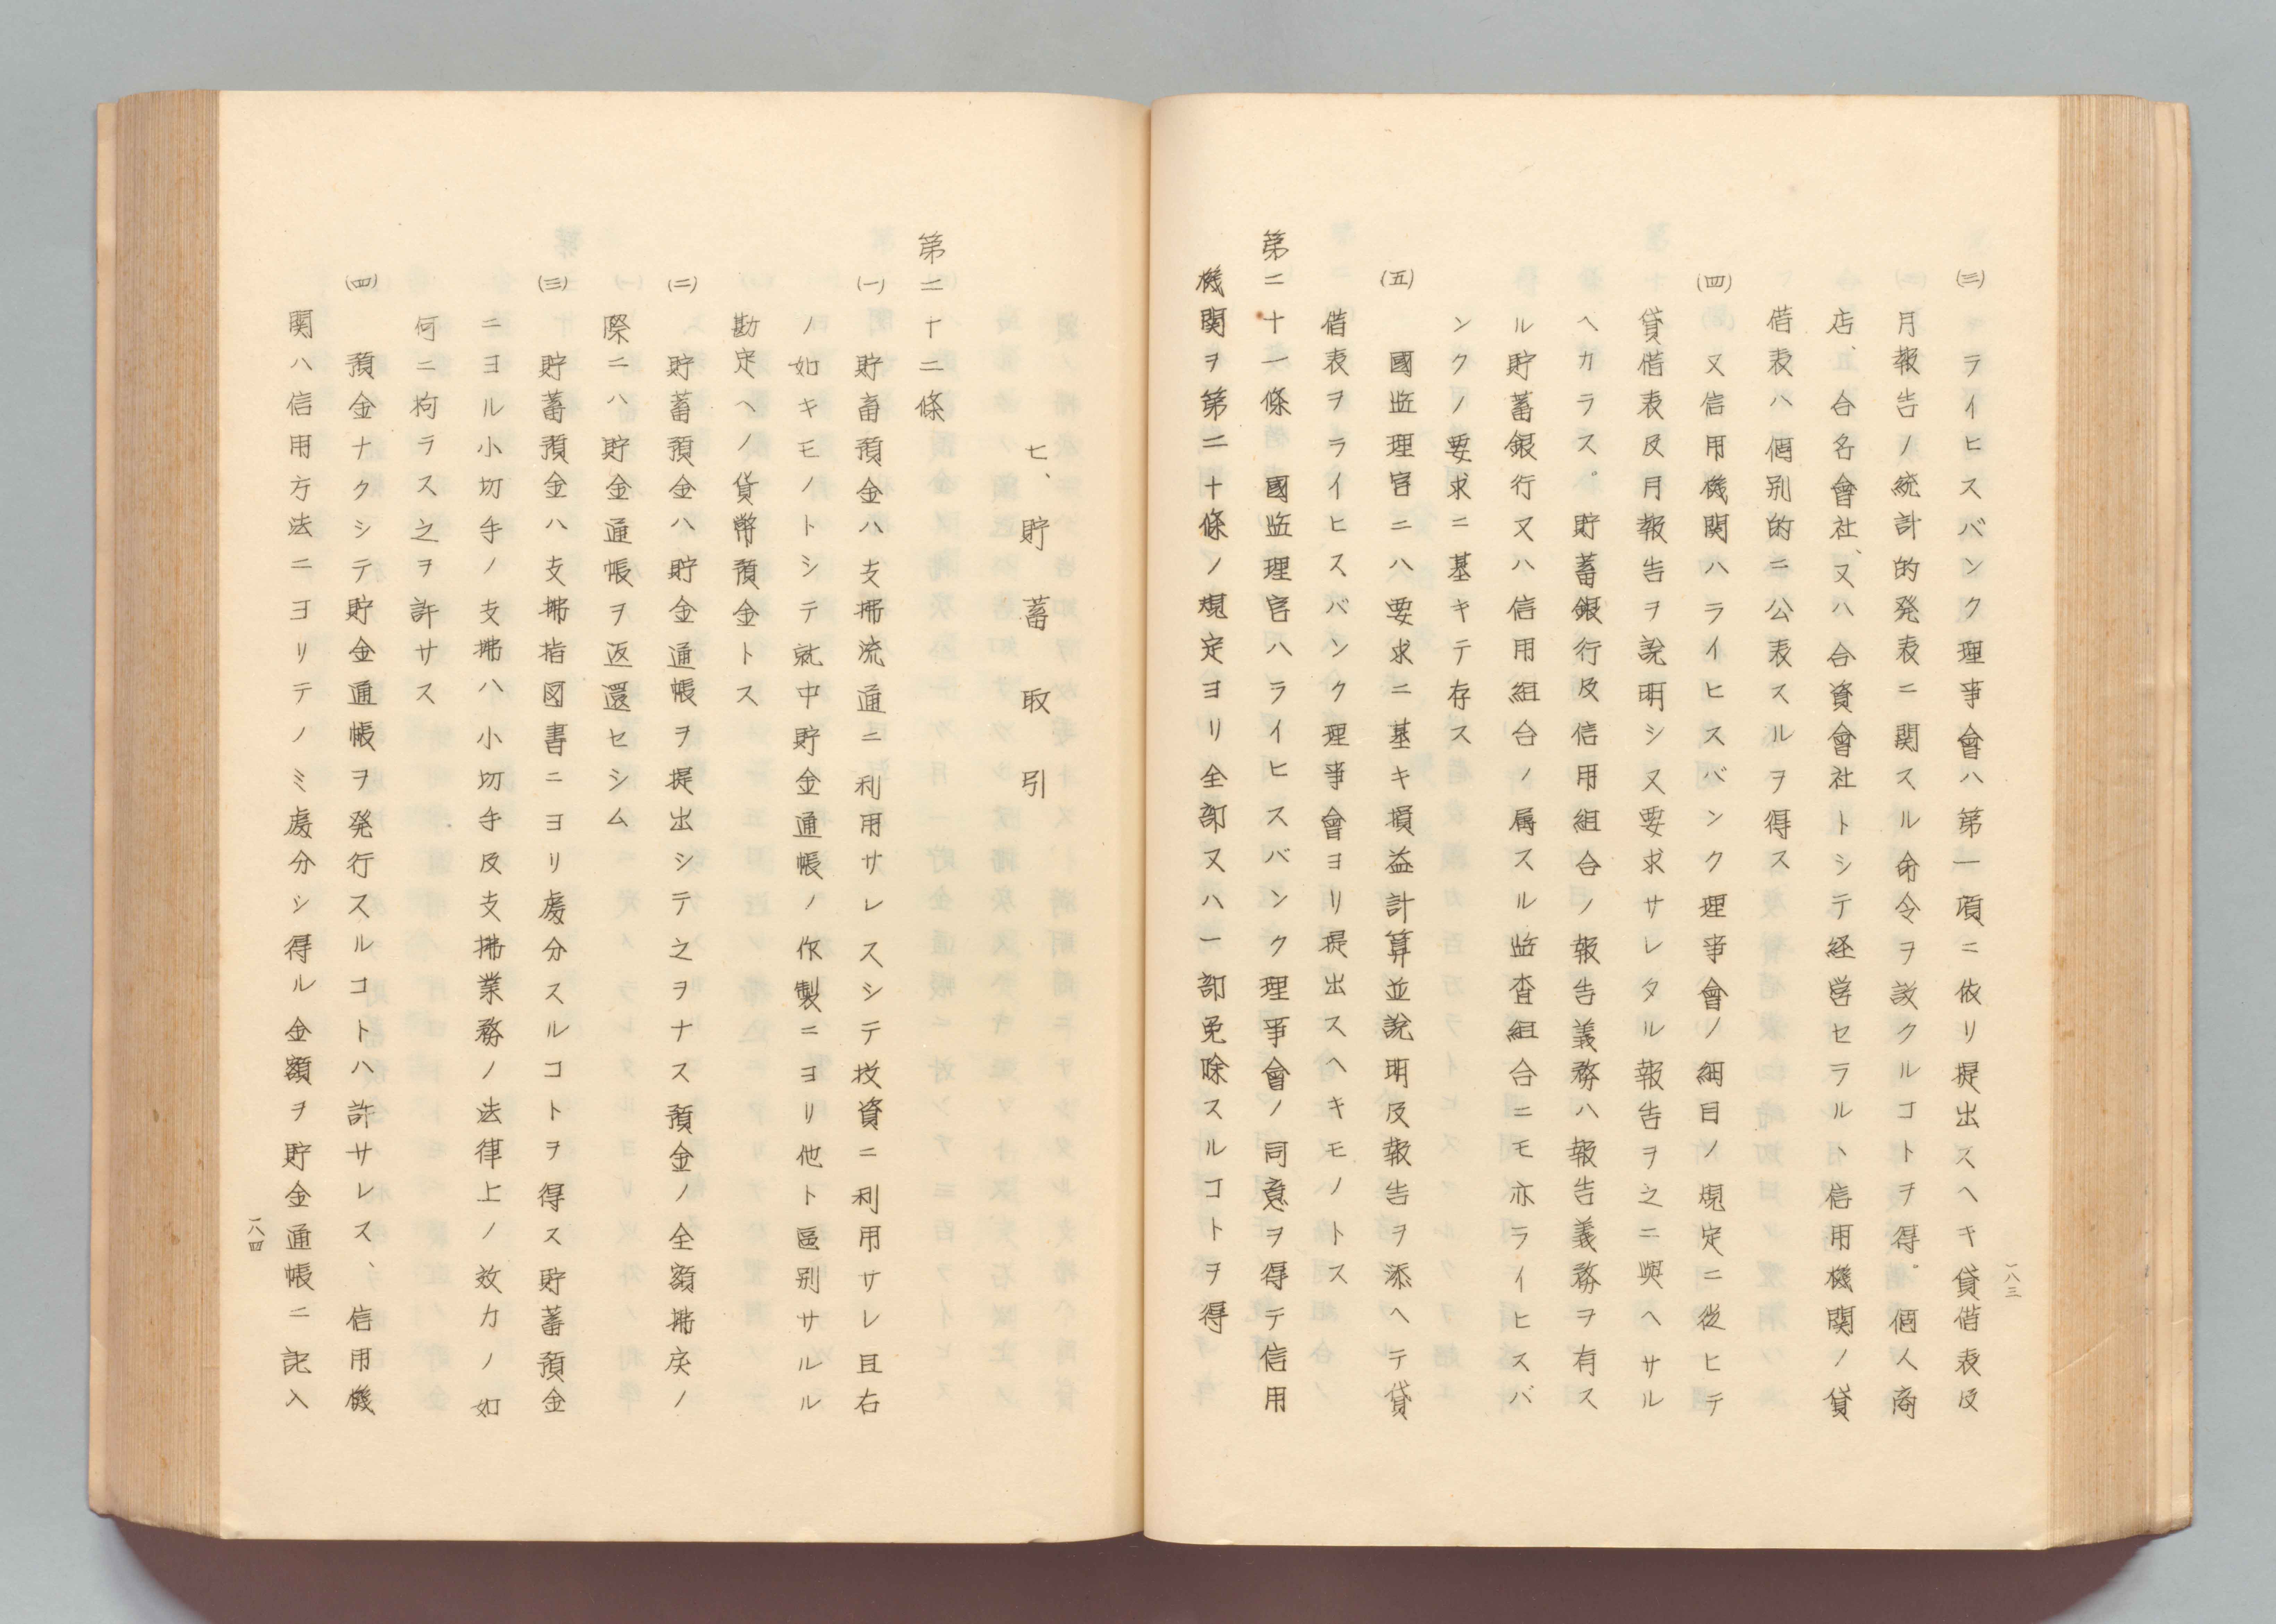 ㈢ ライヒスバンク理事會ハ第一項ニ依リ提出スヘキ貸借表及
月報告ノ統計的発表ニ関スル命令ヲ設クルコトヲ得。個人商
店、合名會社、又ハ合資會社トシテ経営セラルヽ信用機関ノ貸
借表ハ個別的ニ公表スルヲ得ス
㈣ 又信用機関ハライヒスバンク理事會ノ細目ノ規定ニ従ヒテ
貸借表及月報告ヲ説明シ又要求サレタル報告ヲ之ニ與ヘサル
ヘカラス。貯蓄銀行及信用組合ノ報告義務ハ報告義務ヲ有ス
ル貯蓄銀行又ハ信用組合ノ属スル監査組合ニモ亦ライヒスバ
ンクノ要求ニ基キテ存ス
㈤ 國監理官ニハ要求ニ基キ損益計算並説明及報告ヲ添ヘテ貸
借表ヲライヒスバンク理事會ヨリ提出スヘキモノトス
第二十一條 國監理官ハライヒスバンク理事會ノ同意ヲ得テ信用
機関ヲ第二十條ノ規定ヨリ全部又ハ一部免除スルコトヲ得
一八三
七、貯蓄取引
第二十二條
㈠ 貯蓄預金ハ支拂流通ニ利用サレスシテ投資ニ利用サレ且右
ノ如キモノトシテ就中貯金通帳ノ作製ニヨリ他ト區別サルル
勘定ヘノ貨幣預金トス
㈡ 貯蓄預金ハ貯金通帳ヲ提出シテ之ヲナス預金ノ全額拂戻ノ
際ニハ貯金通帳ヲ返還セシム
㈢ 貯蓄預金ハ支拂指図書ニヨリ處分スルコトヲ得ス貯蓄預金
ニヨル小切手ノ支拂ハ小切手及支拂業務ノ法律上ノ效力ノ如
何ニ拘ラス之ヲ許サス
㈣ 預金ナクシテ貯金通帳ヲ発行スルコトハ許サレス、信用機
関ハ信用方法ニヨリテノミ處分シ得ル金額ヲ貯金通帳ニ記入
一八四